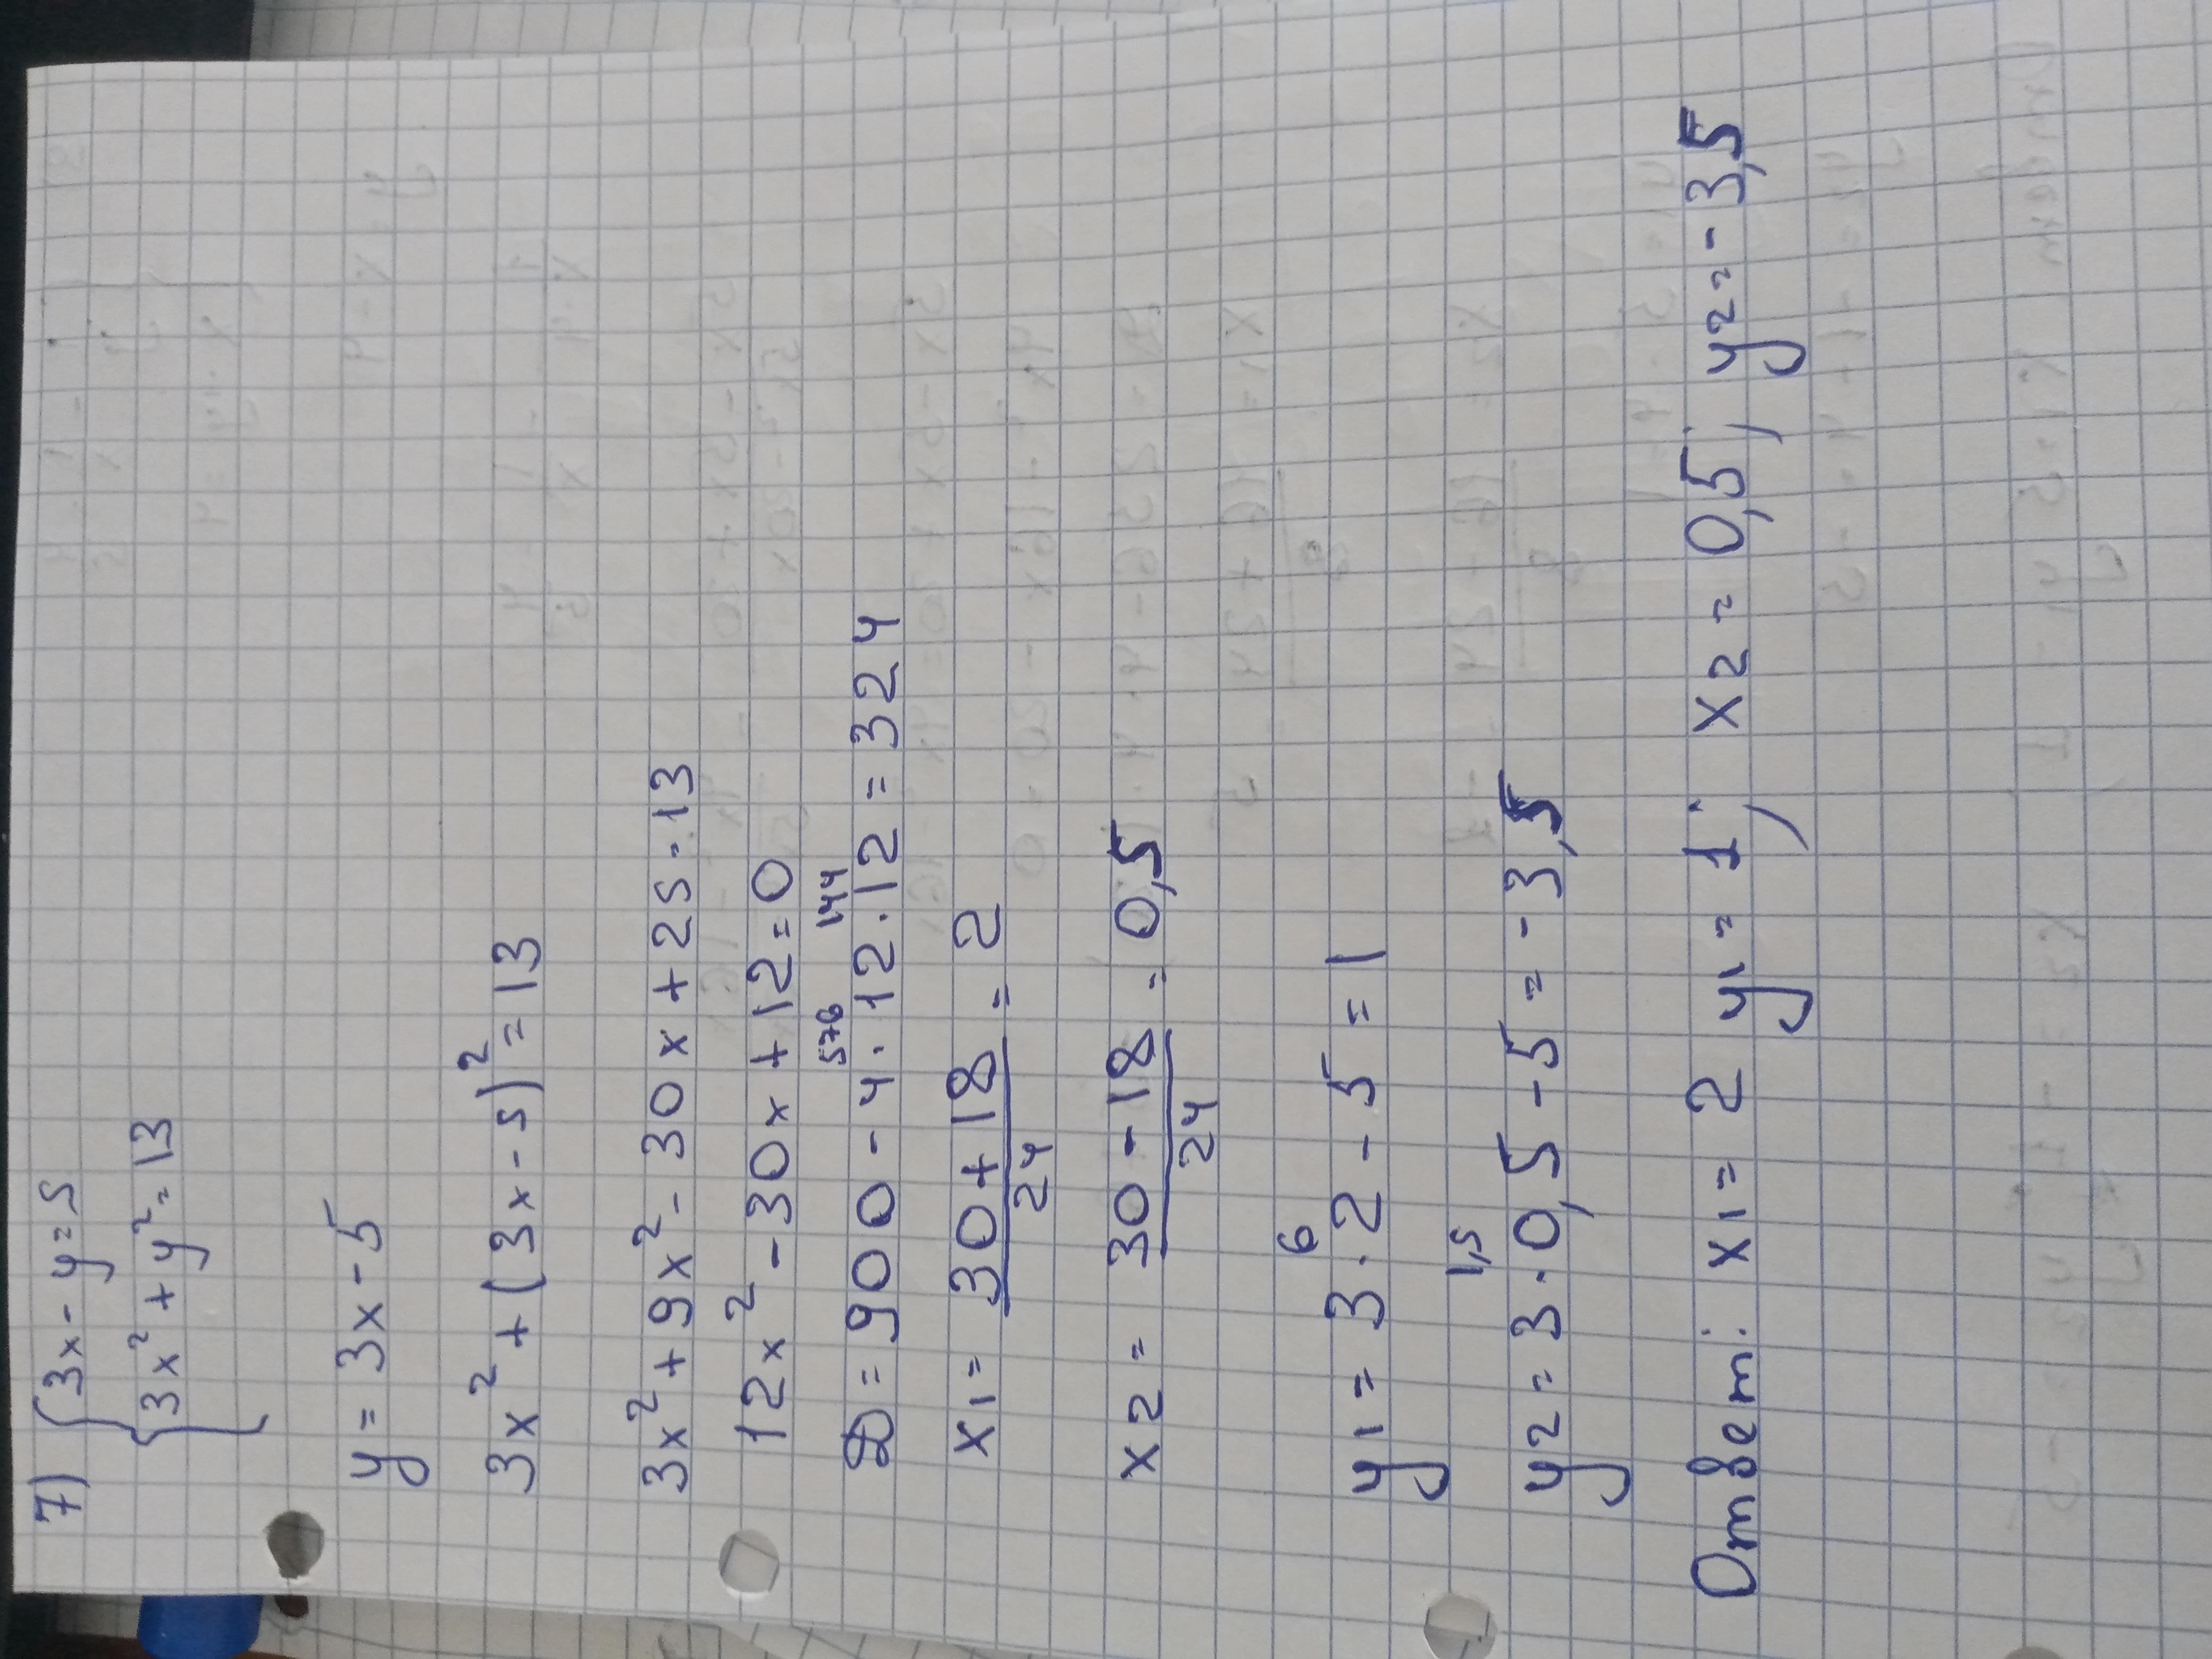 7) {3x - y = 5
{3x² + y² = 13
y = 3x - 5
3x² + (3x - 5)² = 13
3x² + 9x² - 30x + 25 = 13
12x² - 30x + 12 = 0
576 144
D = 900 - 4 · 12 · 12 = 324
x1 = 30 + 18 / 24 = 2
x2 = 30 - 18 / 24 = 0,5
6
y1 = 3 · 2 - 5 = 1
1,5
y2 = 3 · 0,5 - 5 = - 3,5
Ответ: x1 = 2 y1 = 1; x2 = 0,5; y2 = - 3,5